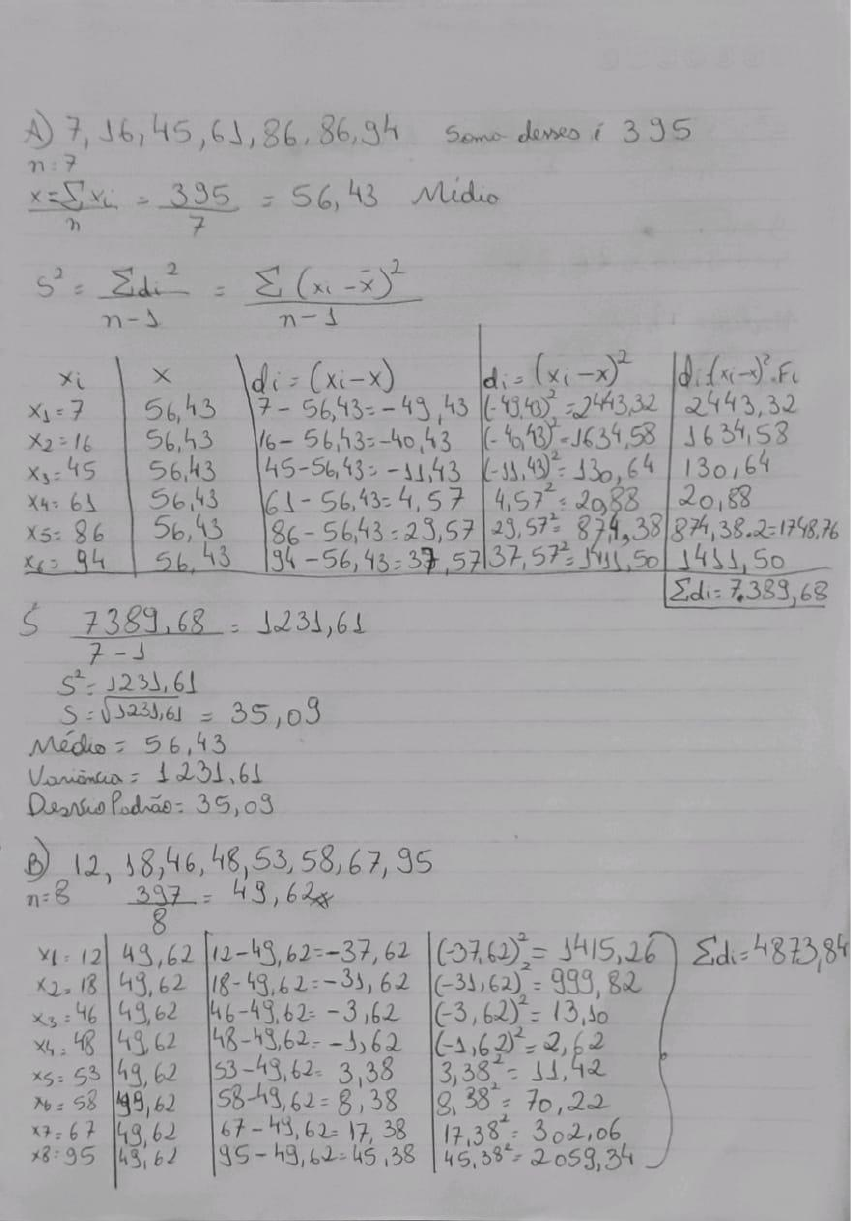 A) 7, 16, 45, 61, 86, 86, 94 Soma desses é 395
n: 7
x = Σxi / n = 395 / 7 = 56,43 Média
S² = Σdi² / n-1 = Σ (xi - x̄)² / n-1
xi | x | di = (xi-x) | di = (xi-x)² | di:(xi-x)².Fi
x1=7 | 56,43 | 7 - 56,43 = -49,43 | (-49,43)² = 2443,32 | 2443,32
x2=16 | 56,43 | 16 - 56,43 = -40,43 | (-40,43)² = 1634,58 | 1634,58
x3=45 | 56,43 | 45-56,43 = -11,43 | (-11,43)² = 130,64 | 130,64
x4=61 | 56,43 | 61 - 56,43 = 4,57 | 4,57² = 20,88 | 20,88
x5=86 | 56,43 | 86 - 56,43 = 29,57 | 29,57² = 874,38 | 874,38.2=1748,76
x6=94 | 56,43 | 94 - 56,43 = 37,57 | 37,57² = 1411,50 | 1411,50
Σdi = 7.389,68
S 7389,68 / 7-1 = 1231,61
S² = 1231,61
S = √1231,61 = 35,09
Média = 56,43
Variância = 1231,61
Desvio Padrão = 35,09
B) 12, 18, 46, 48, 53, 58, 67, 95
n=8 397 / 8 = 49,62
x1=12 | 49,62 | 12-49,62 = -37,62 | (-37,62)² = 1415,26 Σdi = 4873,84
x2=18 | 49,62 | 18-49,62 = -31,62 | (-31,62)² = 999,82
x3=46 | 49,62 | 46-49,62 = -3,62 | (-3,62)² = 13,10
x4=48 | 49,62 | 48-49,62 = -1,62 | (-1,62)² = 2,62
x5=53 | 49,62 | 53-49,62 = 3,38 | 3,38² = 11,42
x6=58 | 49,62 | 58-49,62 = 8,38 | 8,38² = 70,22
x7=67 | 49,62 | 67-49,62 = 17,38 | 17,38² = 302,06
x8=95 | 49,62 | 95-49,62 = 45,38 | 45,38² = 2059,34